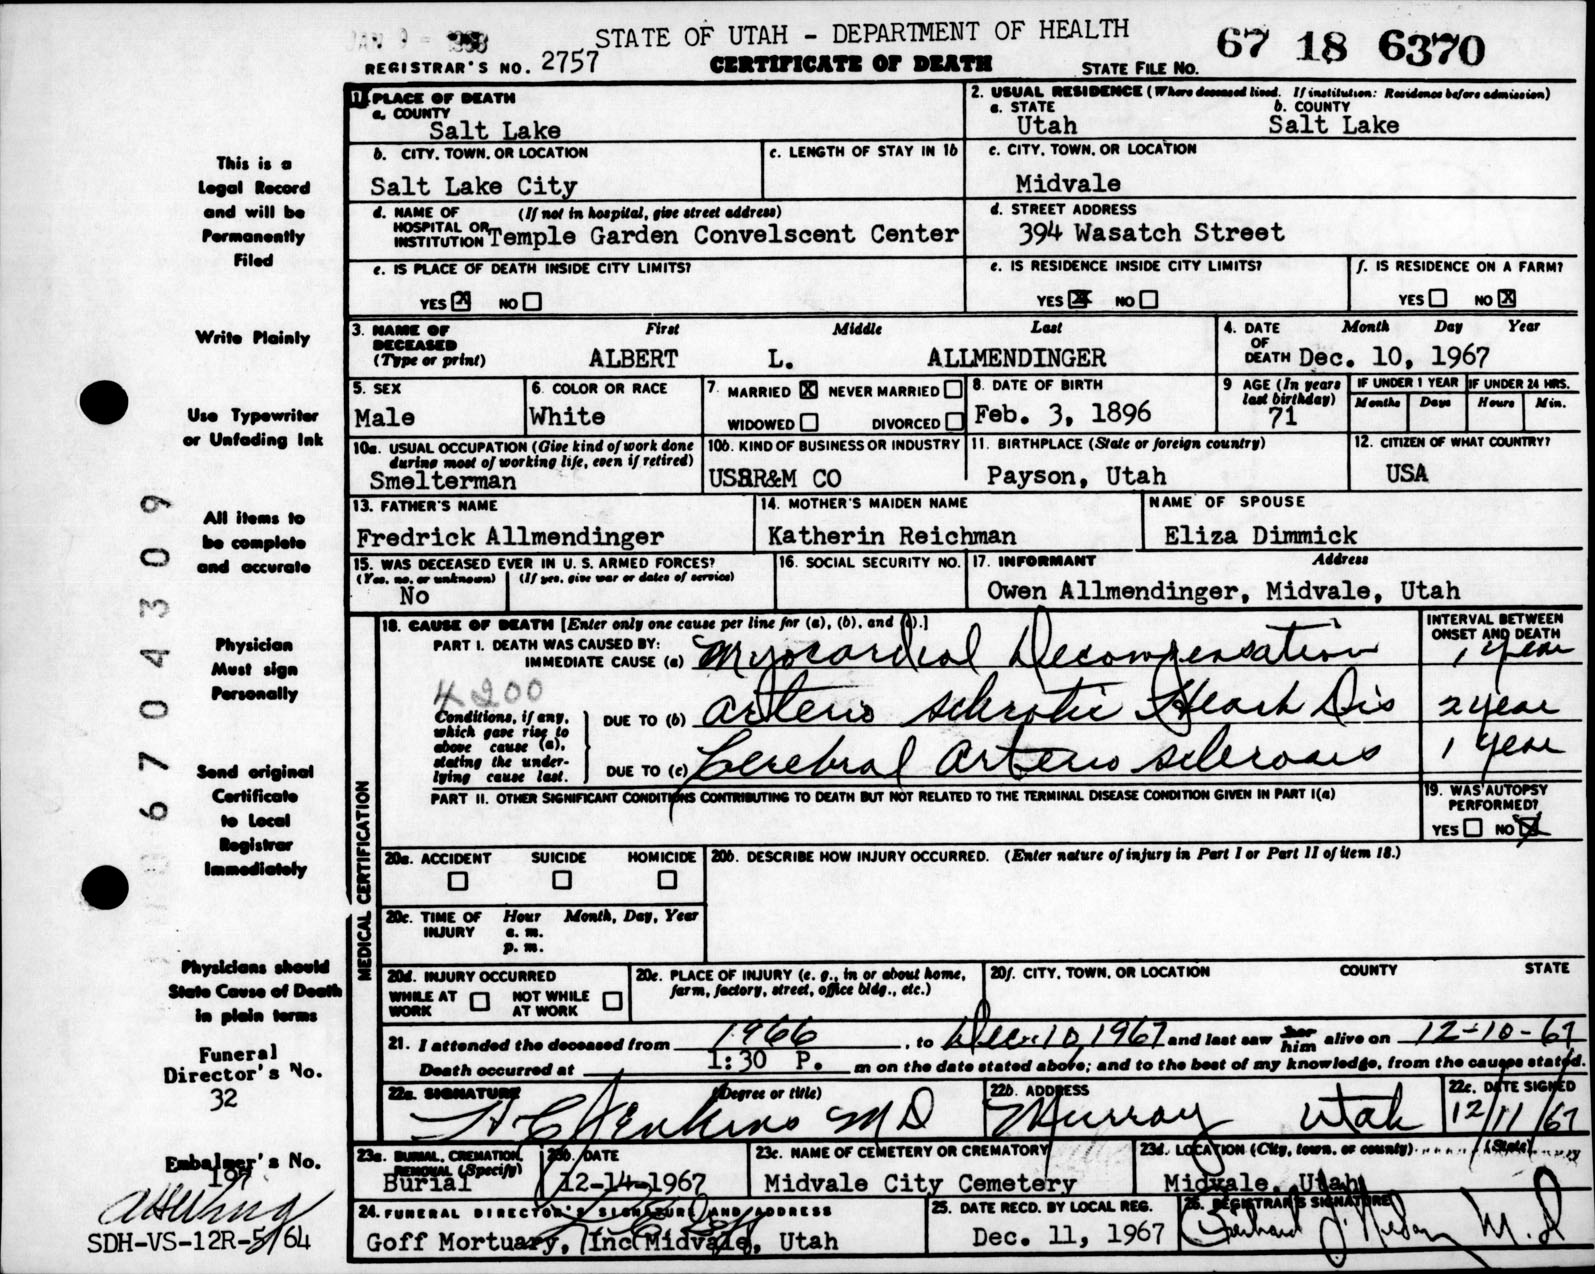 STATE OF UTAH - DEPARTMENT OF HEALTH
67 18 6370
REGISTRAR'S NO. 2757
CERTIFICATE OF DEATH
STATE FILE NO.
1. PLACE OF DEATH
a. COUNTY
Salt Lake
2. USUAL RESIDENCE (Where deceased lived. If institution: Residence before admission)
a. STATE b. COUNTY
Utah Salt Lake
b. CITY, TOWN, OR LOCATION
Salt Lake City
c. LENGTH OF STAY IN 1b
c. CITY, TOWN, OR LOCATION
Midvale
d. NAME OF HOSPITAL OR INSTITUTION (If not in hospital, give street address)
Temple Garden Convelscent Center
d. STREET ADDRESS
394 Wasatch Street
e. IS PLACE OF DEATH INSIDE CITY LIMITS?
YES X NO
e. IS RESIDENCE INSIDE CITY LIMITS?
YES X NO
f. IS RESIDENCE ON A FARM?
YES NO X
3. NAME OF DECEASED (Type or print)
First Middle Last
ALBERT L. ALLMENDINGER
4. DATE OF DEATH Month Day Year
Dec. 10, 1967
5. SEX
Male
6. COLOR OR RACE
White
7. MARRIED X NEVER MARRIED
WIDOWED DIVORCED
8. DATE OF BIRTH
Feb. 3, 1896
9 AGE (In years last birthday)
71
IF UNDER 1 YEAR
Months Days
IF UNDER 24 HRS.
Hours Min.
10a. USUAL OCCUPATION (Give kind of work done during most of working life, even if retired)
Smelterman
10b. KIND OF BUSINESS OR INDUSTRY
USSR&M CO
11. BIRTHPLACE (State or foreign country)
Payson, Utah
12. CITIZEN OF WHAT COUNTRY?
USA
13. FATHER'S NAME
Fredrick Allmendinger
14. MOTHER'S MAIDEN NAME
Katherin Reichman
NAME OF SPOUSE
Eliza Dimmick
15. WAS DECEASED EVER IN U. S. ARMED FORCES?
(Yes, no, or unknown) (If yes, give war or dates of service)
No
16. SOCIAL SECURITY NO.
17. INFORMANT Address
Owen Allmendinger, Midvale, Utah
18. CAUSE OF DEATH [Enter only one cause per line for (a), (b), and (c).]
PART I. DEATH WAS CAUSED BY:
IMMEDIATE CAUSE (a) Myocardial Decompensation
INTERVAL BETWEEN ONSET AND DEATH
1 year
4200
Conditions, if any, which gave rise to above cause (a), stating the underlying cause last.
DUE TO (b) Arterio sclerotic Heart Dis 2 year
DUE TO (c) Cerebral Arterio sclerosis 1 year
PART II. OTHER SIGNIFICANT CONDITIONS CONTRIBUTING TO DEATH BUT NOT RELATED TO THE TERMINAL DISEASE CONDITION GIVEN IN PART I(a)
19. WAS AUTOPSY PERFORMED?
YES NO X
MEDICAL CERTIFICATION
20a. ACCIDENT SUICIDE HOMICIDE
20b. DESCRIBE HOW INJURY OCCURRED. (Enter nature of injury in Part I or Part II of item 18.)
20c. TIME OF INJURY Hour Month, Day, Year
a. m.
p. m.
20d. INJURY OCCURRED
WHILE AT WORK NOT WHILE AT WORK
20e. PLACE OF INJURY (e. g., in or about home, farm, factory, street, office bldg., etc.)
20f. CITY, TOWN, OR LOCATION COUNTY STATE
21. I attended the deceased from 1966, to Dec. 10, 1967 and last saw her him alive on 12-10-67
Death occurred at 1:30 P. m on the date stated above; and to the best of my knowledge, from the causes stated.
22a. SIGNATURE (Degree or title)
H C Jenkins MD
22b. ADDRESS
Murray Utah
22c. DATE SIGNED
12/11/67
23a. BURIAL, CREMATION, REMOVAL (Specify)
Burial
23b. DATE
12-14-1967
23c. NAME OF CEMETERY OR CREMATORY
Midvale City Cemetery
23d. LOCATION (City, town, or county) (State)
Midvale, Utah
24. FUNERAL DIRECTOR'S SIGNATURE AND ADDRESS
Goff Mortuary, Inc Midvale, Utah
25. DATE RECD. BY LOCAL REG.
Dec. 11, 1967
26. REGISTRAR'S SIGNATURE
M.D.
This is a
Legal Record
and will be
Permanently
Filed
Write Plainly
Use Typewriter
or Unfading Ink
All items to
be complete
and accurate
Physician
Must sign
Personally
Send original
Certificate
to Local
Registrar
Immediately
Physicians should
State Cause of Death
in plain terms
Funeral
Director's No.
32
Embalmer's No.
197
SDH-VS-12R-5/64